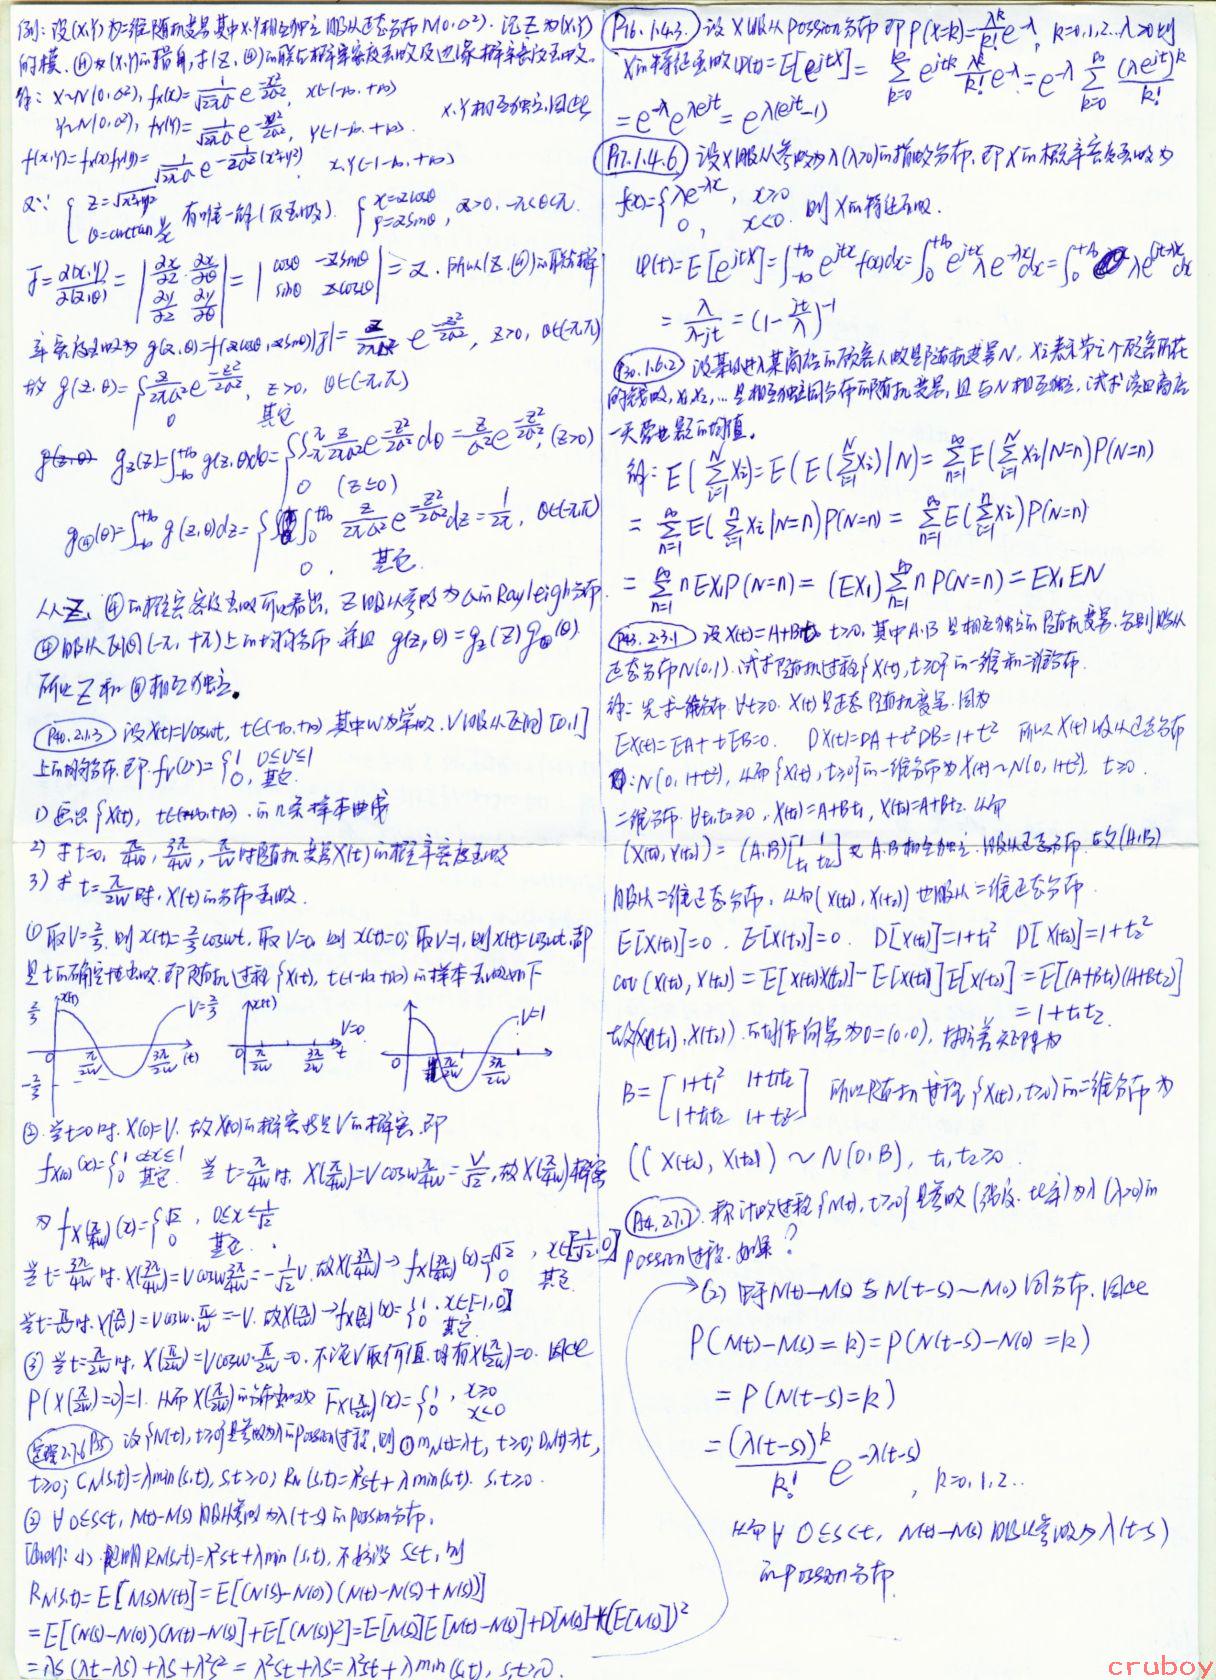 例: 设(X,Y)为二维随机变量其中X,Y相互独立服从正态分布N(0,σ²). 记Z为(X,Y)
的模, Ⓗ为(X,Y)的指角, 求(Z,Ⓗ)的联合概率密度函数及边缘概率密度函数.
解: X~N(0,σ²), fx(x)= 1/√2πσ e^-x²/2σ², x∈(-∞,+∞)
Y~N(0,σ²), fY(y)= 1/√2πσ e^-y²/2σ², y∈(-∞,+∞). X,Y相互独立,因此
f(x,y)=fx(x)fY(y)=
又∵ { Z=√x²+y² 有唯一解(反函数). { x=zcosθ
θ=arctan y/x y=zsinθ, z>0, -π<θ<π.
J=∂(x,y)/∂(z,θ) = |∂x/∂z ∂x/∂θ; ∂y/∂z ∂y/∂θ| = |cosθ -zsinθ; sinθ zcosθ| = z. 所以(Z,Ⓗ)的联合概
率密度函数为 g(z,θ)=f(zcosθ,zsinθ)|J|= z/2πσ² e^-z²/2σ², z>0, θ∈(-π,π)
故 g(z,θ)= { z/2πσ² e^-z²/2σ², z>0, θ∈(-π,π)
0 其它
gz(z)=∫-∞^+∞ g(z,θ)dθ= { ∫-π^π z/2πσ² e^-z²/2σ² dθ = z/σ² e^-z²/2σ², (z>0)
0 (z≤0)
gⒽ(θ)=∫-∞^+∞ g(z,θ)dz= { ∫0^+∞ z/2πσ² e^-z²/2σ² dz = 1/2π, θ∈(-π,π)
0, 其它.
从Z, Ⓗ的概率密度函数可以看出, Z服从参数为σ的Rayleigh分布
Ⓗ服从区间(-π, +π)上的均匀分布 并且 g(z,θ)=gz(z)gⒽ(θ).
所以Z和Ⓗ相互独立.
P40.2.1.3 设X(t)=Vcoswt, t∈(-∞,+∞) 其中w为常数, V服从区间[0,1]
上的均匀分布, 即 fv(v)= {1 0≤v≤1
0, 其它
1) 画出{X(t), t∈(-∞,+∞)}的几条样本曲线
2) 求t=0, π/4w, 3π/4w, π/w时随机变量X(t)的概率密度函数
3) 求t=π/2w时, X(t)的分布函数.
① 取V=2/3, 则x(t)=2/3coswt, 取V=0, 则x(t)=0; 取V=1, 则x(t)=coswt, 都
是t的确定性函数. 即随机过程{X(t), t∈(-∞,+∞)}的样本函数如下
2/3 x(t) V=2/3 x(t) V=0 V=1
0 π/2w 3π/2w (t) 0 π/2w 3π/2w t 0 π/2w 3π/2w
-2/3
② 当t=0时, X(0)=V. 故X(0)的概密就是V的概密. 即
fx(0)(x)= {1 0≤x≤1
0 其它. 当t=π/4w时, X(π/4w)=Vcosw π/4w = V/√2, 故X(π/4w)概密
为 fx(π/4w)(x)= {√2, 0≤x≤1/√2
0 其它.
当t=3π/4w时, X(3π/4w)=Vcosw3π/4w=-1/√2 V. 故X(3π/4w)→fx(3π/4w)(x)= {√2, x∈[-1/√2,0]
0 其它
当t=π/w时, X(π/w)=Vcosw·π/w=-V. 故X(π/w)→fx(π/w)(x)= {1, x∈[-1,0]
0 其它.
③ 当t=π/2w时, X(π/2w)=Vcosw·π/2w=0. 不论V取何值, 均有X(π/2w)=0. 因此
P(X(π/2w)=0)=1. 从而X(π/2w)的分布函数 Fx(π/2w)(x)= {1, x≥0
0 x<0
定理2.7.6 P55 设{N(t), t≥0}是参数为λ的possion过程, 则①mN(t)=λt, t≥0; DN(t)=λt,
t≥0; CN(s,t)=λmin(s,t), s,t≥0; RN(s,t)=λ²st+λmin(s,t). s,t≥0.
② ∀0≤s<t, N(t)-N(s)服从参数为λ(t-s)的possion分布.
证明: (1) RN(s,t)=λ²st+λmin(s,t), 不妨设s<t, 则
RN(s,t)=E[N(s)N(t)]=E[(N(s)-N(0))(N(t)-N(s)+N(s))]
=E[(N(s)-N(0))(N(t)-N(s)]+E[(N(s))²]=E[N(s)]E[N(t)-N(s)]+D[N(s)]+(E[N(s)])²
=λs(λt-λs)+λs+λ²s² = λ²st+λs=λ²st+λmin(s,t), s,t≥0.
P16.1.4.3. 设X服从possion分布 即P(X=k)=λ^k/k! e^-λ, k=0,1,2... λ>0 则
X的特征函数φ(t)=E[e^jtX]= Σk=0^∞ e^jtk λ^k/k! e^-λ = e^-λ Σk=0^∞ (λe^jt)^k/k!
=e^-λ e^λe^jt = e^λ(e^jt-1)
P17.1.4.6 设X服从参数为λ(λ>0)的指数分布. 即X的概率密度函数为
f(x)= {λe^-λx, x≥0
0, x<0. 则X的特征函数.
φ(t)=E[e^jtX]=∫-∞^+∞ e^jtx f(x)dx=∫0^+∞ e^jtx λe^-λx dx=∫0^+∞ λe^(jt-λ)x dx
= λ/λ-jt = (1-jt/λ)^-1
P30.1.6.2 设某日进入某商店的顾客人数是随机变量N, Xi表示第i个顾客所花
的钱数, X1,X2,... 是相互独立同分布的随机变量, 且与N相互独立, 试求该日商店
一天营业额的均值.
解: E(Σi=1^N Xi)=E(E(Σi=1^N Xi)|N)= Σn=1^∞ E(Σi=1^N Xi|N=n)P(N=n)
= Σn=1^∞ E(Σi=1^n Xi|N=n)P(N=n)= Σn=1^∞ E(Σi=1^n Xi)P(N=n)
= Σn=1^∞ nEX1P(N=n)= (EX1)Σn=1^∞ nP(N=n)=EX1EN
P43.2.3.1 设X(t)=A+Bt, t≥0, 其中A,B是相互独立的随机变量, 分别服从
正态分布N(0,1). 试求随机过程{X(t), t≥0}的一维和二维分布.
解: 先求一维分布. ∀t≥0. X(t)是正态随机变量. 因为
EX(t)=EA+tEB=0. DX(t)=DA+t²DB=1+t² 所以X(t)服从正态分布
N(0,1+t²), 从而{X(t), t≥0}的一维分布为X(t)~N(0,1+t²), t≥0.
二维分布. ∀t1,t2≥0, X(t1)=A+Bt1, X(t2)=A+Bt2. 从而
(X(t1),X(t2))=(A,B)[1 1; t1 t2] 又A,B相互独立. 服从正态分布. 故(A,B)
服从二维正态分布, 从而(X(t1), X(t2))也服从二维正态分布.
E[X(t1)]=0. E[X(t2)]=0. D[X(t1)]=1+t1² D[X(t2)]=1+t2²
cov(X(t1),X(t2))=E[X(t1)X(t2)]-E[X(t1)]E[X(t2)]=E[(A+Bt1)(A+Bt2)]
=1+t1t2.
故(X(t1),X(t2))的均值向量为0=(0,0), 协方差矩阵为
B=[1+t1² 1+t1t2; 1+t1t2 1+t2²] 所以随机过程{X(t), t≥0}的二维分布为
((X(t1), X(t2)) ~ N(0,B), t1,t2≥0.
P54.2.7.2. 称计数过程{N(t), t≥0}是参数(强度、比率)为λ(λ>0)的
possion过程. 如果?
(2) 由于N(t)-N(s)与N(t-s)-N(0)同分布. 因此
P(N(t)-N(s)=k)=P(N(t-s)-N(0)=k)
=P(N(t-s)=k)
=(λ(t-s))^k/k! e^-λ(t-s), k=0,1,2...
从而∀0≤s<t, N(t)-N(s)服从参数为λ(t-s)
的possion分布.
cruboy